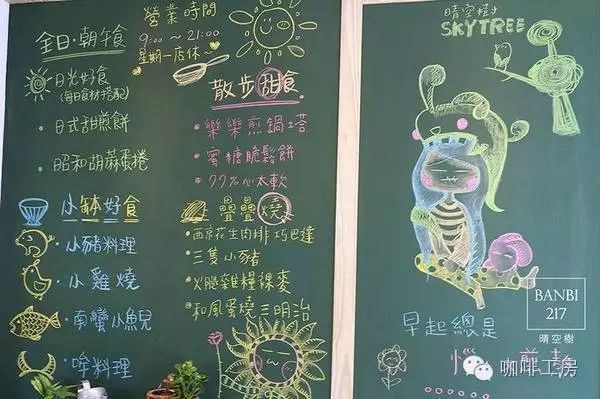 全日·朝午食
日光好食
(每日食材搭配)
·日式甜煎餅
·昭和胡蔴蛋捲
小缽好食
·小豬料理
·小雞燒
·南蠻小魚兒
·哞料理
營業時間
9:00~21:00
星期一店休
散步甜食
·樂樂煎鍋塔
·蜜糖脆鬆餅
·77%心太軟
疊疊燒
·西京花生肉排巧巴達
·三隻小豬
·火腿雜糧裸麥
·和風蛋燒三明治
晴空樹
SKYTREE
BANBI
217
晴空樹
早起總是
咖啡工房